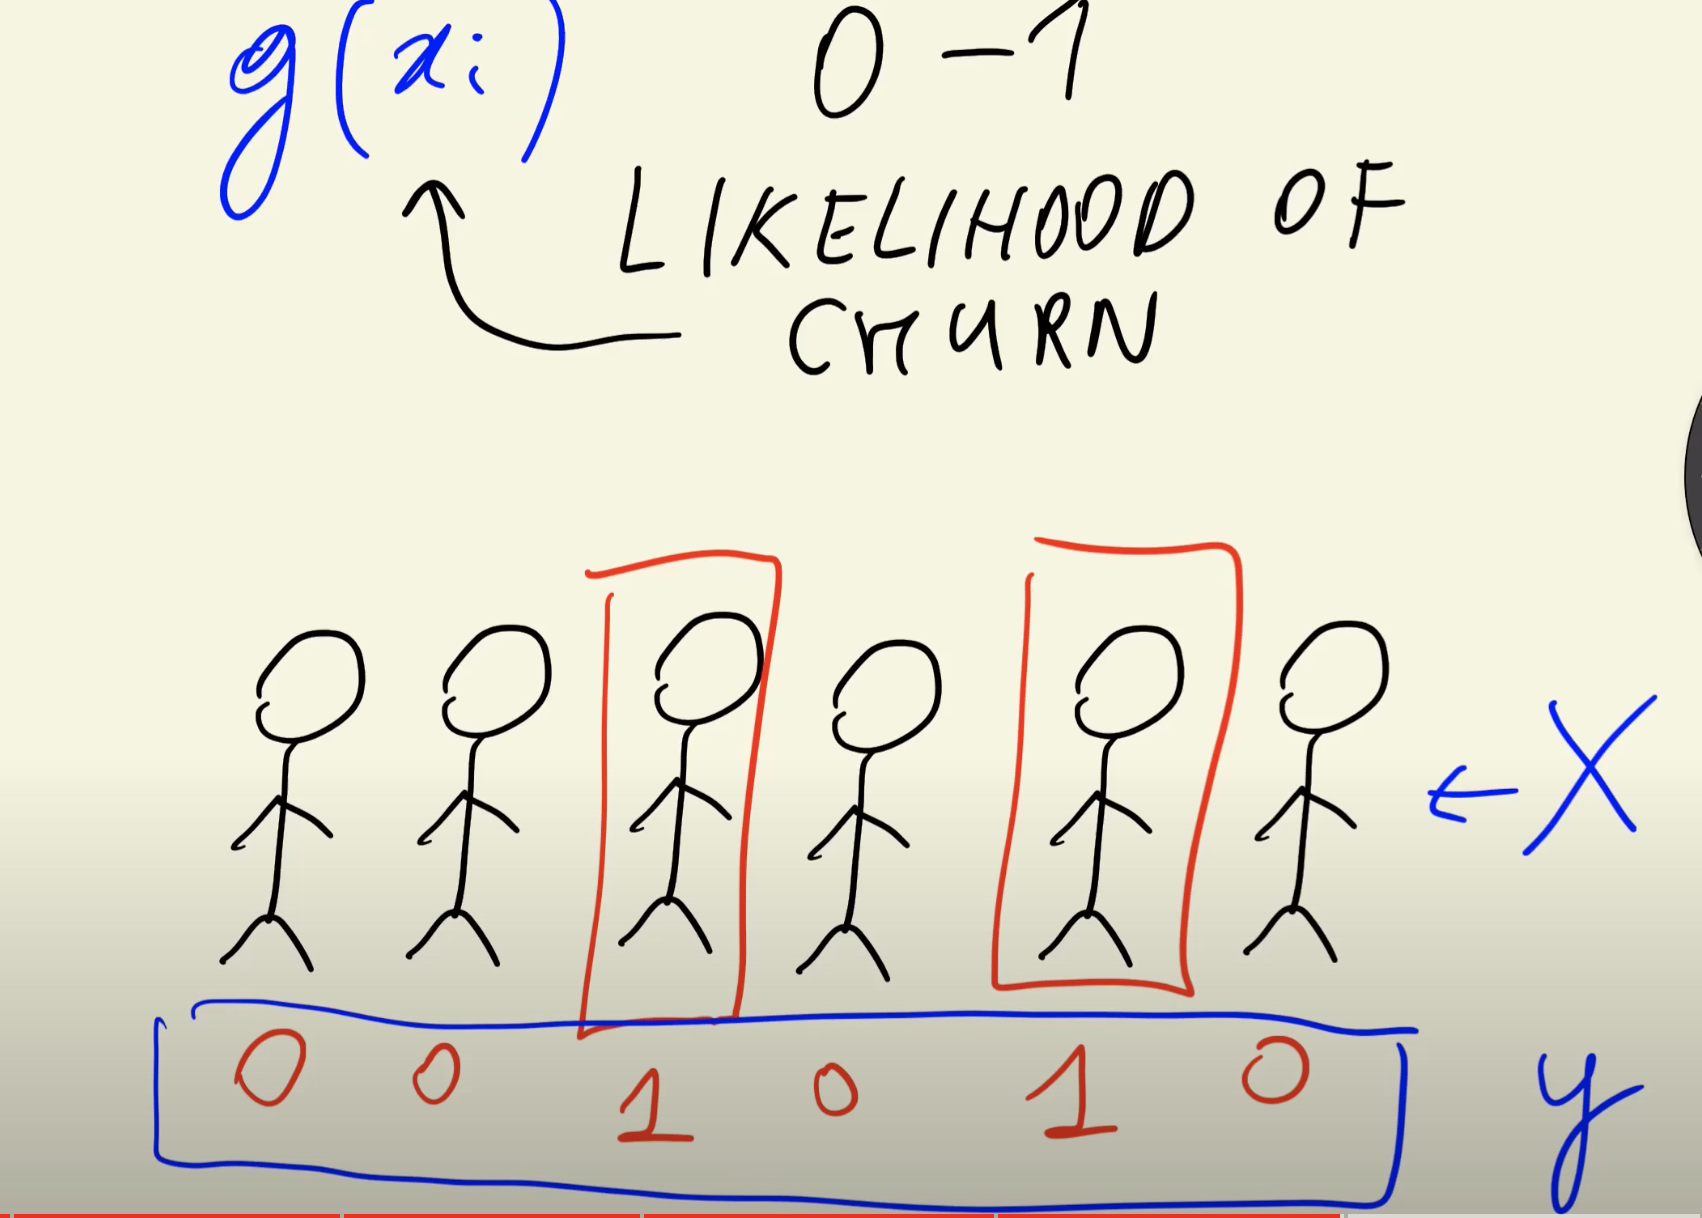 g(xi) 0-1
LIKELIHOOD OF
CHURN
← X
0 0 1 0 1 0 y